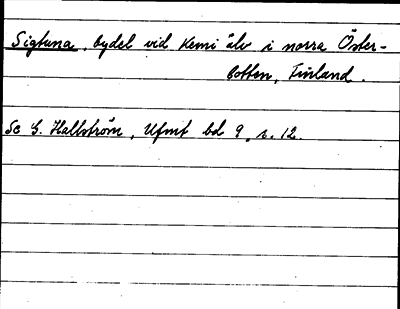 Sigtuna, bydel vid Kemi älv i norra Öster-
botten, Finland.
Se G. Hallström, Ufmt bd 9, s. 12.